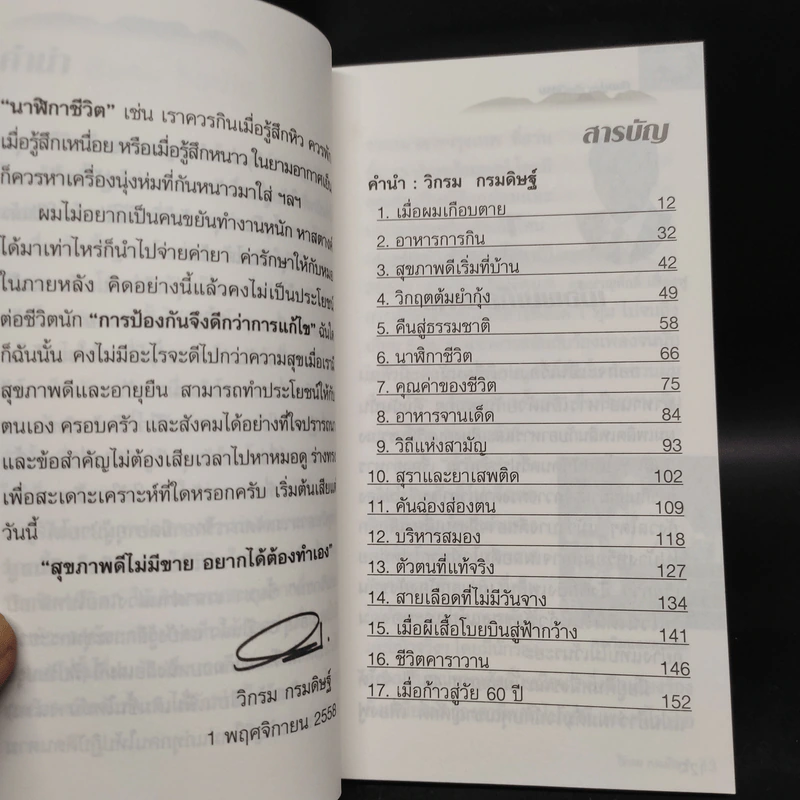 "นาฬิกาชีวิต" เช่น เราควรกินเมื่อรู้สึกหิว
เมื่อรู้สึกเหนื่อย หรือเมื่อรู้สึกหนาว ในยามอากาศเย็น
ก็ควรหาเครื่องนุ่งห่มที่กันหนาวมาใส่ ฯลฯ
ผมไม่อยากเป็นคนขยันทำงานหนัก หาสตางค์
ได้มาเท่าไหร่ก็นำไปจ่ายค่ายา ค่ารักษาให้กับหมอ
ในภายหลัง คิดอย่างนี้แล้วคงไม่เป็นประโยชน์
ต่อชีวิตนัก "การป้องกันจึงดีกว่าการแก้ไข" ฉันใด
ก็ฉันนั้น คงไม่มีอะไรจะดีไปกว่าความสุขเมื่อเรามี
สุขภาพดีและอายุยืน สามารถทำประโยชน์ให้กับ
ตนเอง ครอบครัว และสังคมได้อย่างที่ใจปรารถนา
และข้อสำคัญไม่ต้องเสียเวลาไปหาหมอดู ร่างทรง
เพื่อสะเดาะเคราะห์ที่ใดหรอกครับ เริ่มต้นเสียแต่
วันนี้
"สุขภาพดีไม่มีขาย อยากได้ต้องทำเอง"
วิกรม กรมดิษฐ์
1 พฤศจิกายน 2558
สารบัญ
คำนำ : วิกรม กรมดิษฐ์
1. เมื่อผมเกือบตาย 12
2. อาหารการกิน 32
3. สุขภาพดีเริ่มที่บ้าน 42
4. วิกฤตต้มยำกุ้ง 49
5. คืนสู่ธรรมชาติ 58
6. นาฬิกาชีวิต 66
7. คุณค่าของชีวิต 75
8. อาหารจานเด็ด 84
9. วิถีแห่งสามัญ 93
10. สุราและยาเสพติด 102
11. คันฉ่องส่องตน 109
12. บริหารสมอง 118
13. ตัวตนที่แท้จริง 127
14. สายเลือดที่ไม่มีวันจาง 134
15. เมื่อผีเสื้อโบยบินสู่ฟ้ากว้าง 141
16. ชีวิตคาราวาน 146
17. เมื่อก้าวสู่วัย 60 ปี 152